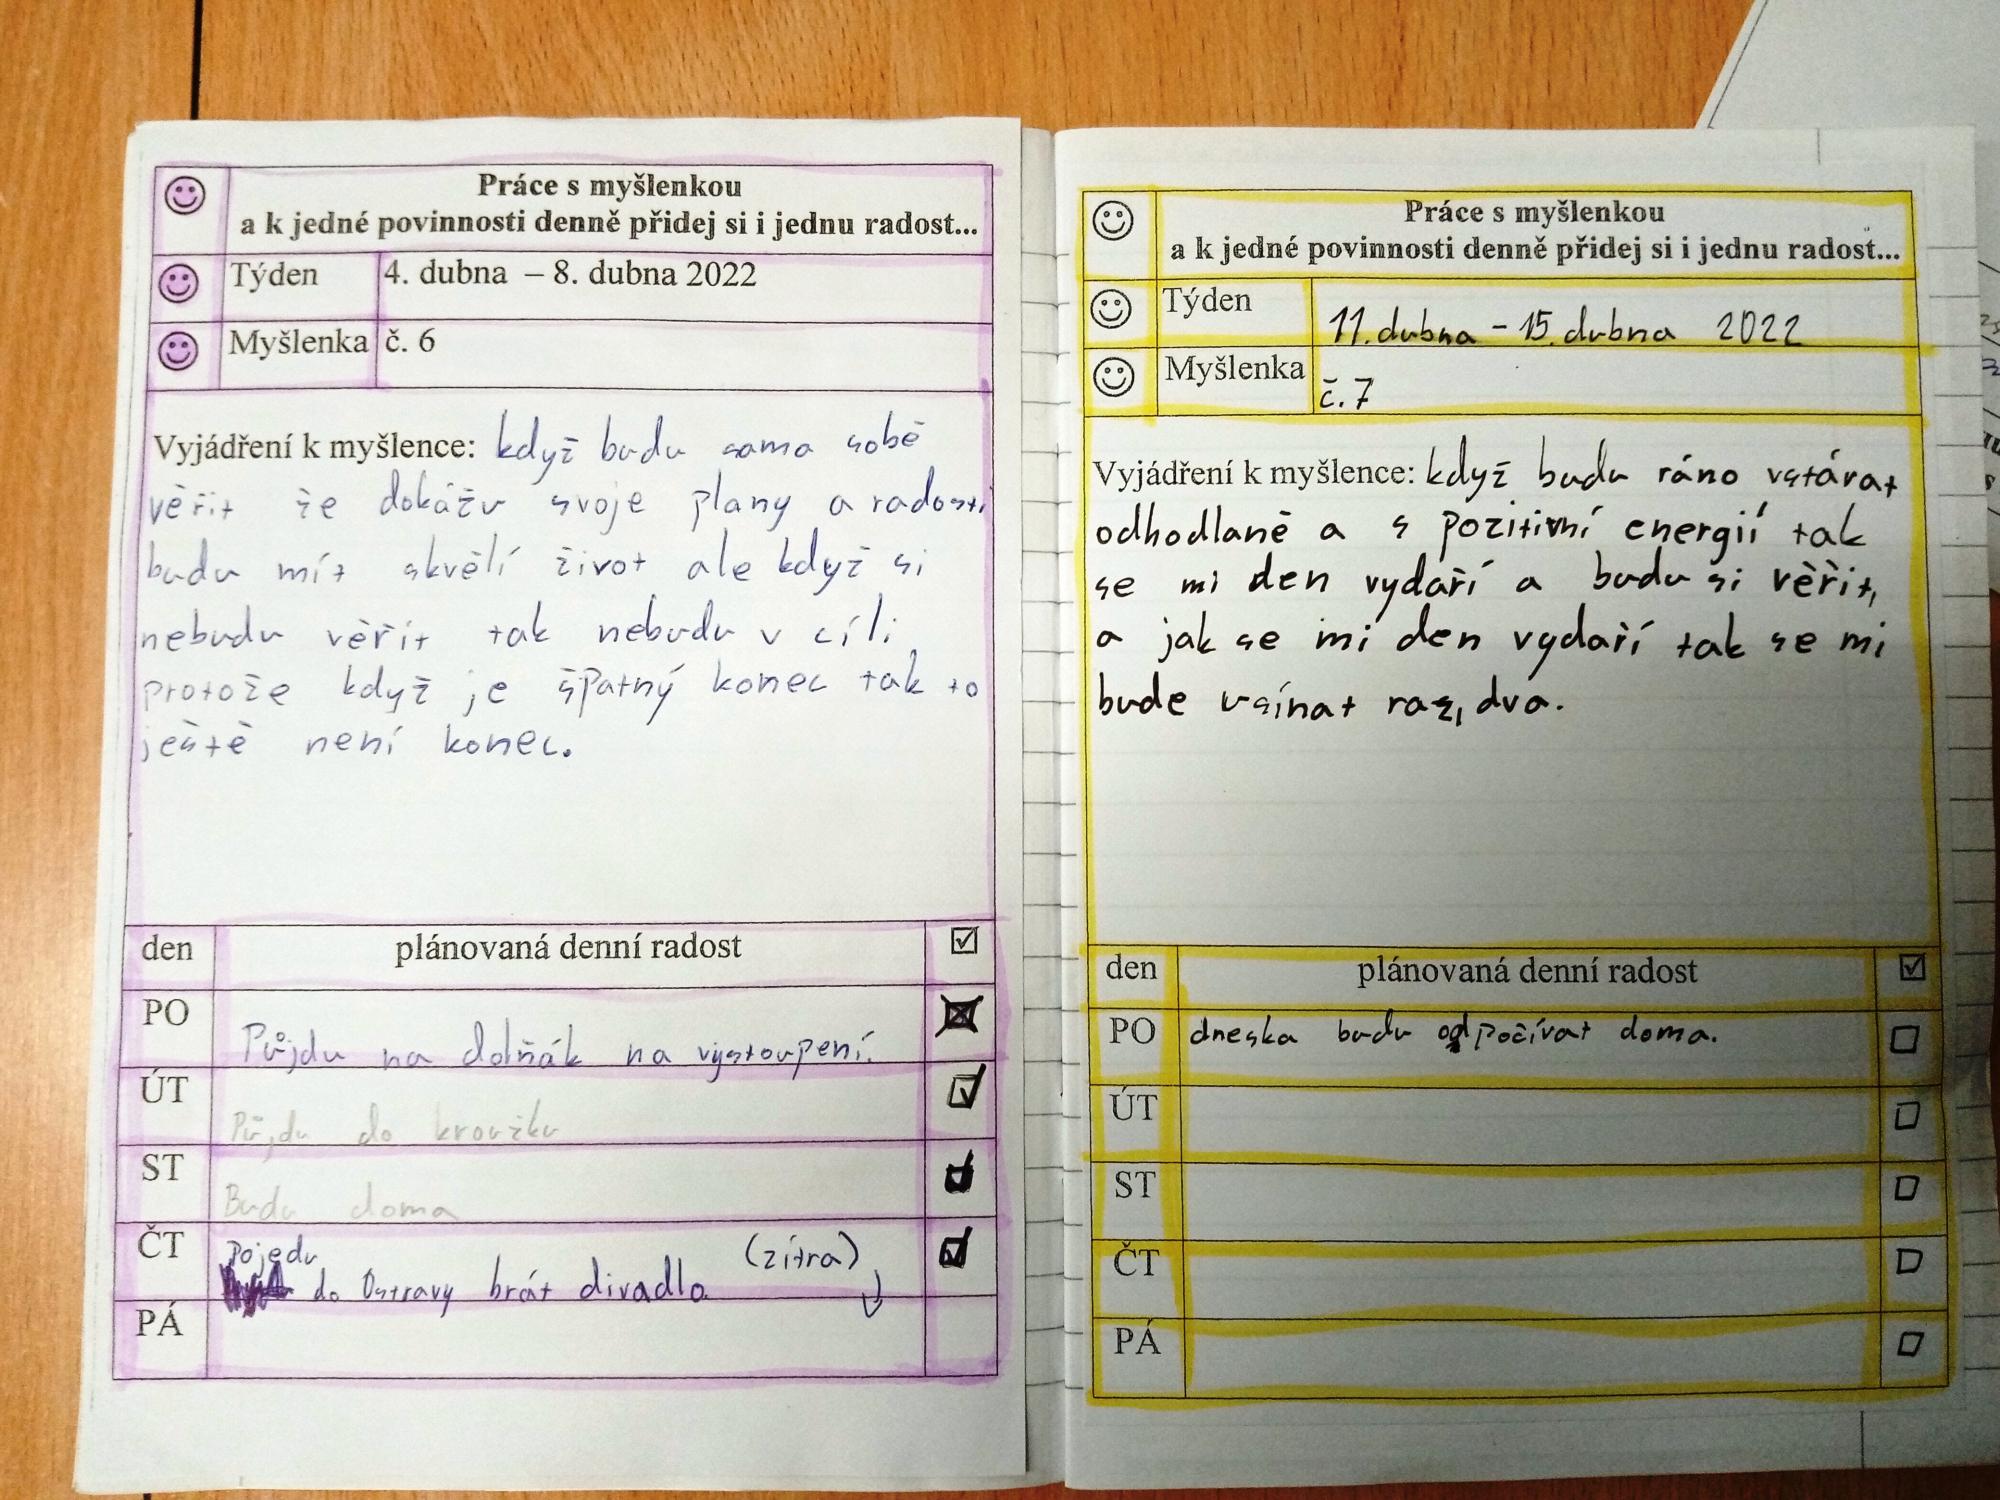 Práce s myšlenkou
a k jedné povinnosti denně přidej si i jednu radost...
Týden 4. dubna – 8. dubna 2022
Myšlenka č. 6
Vyjádření k myšlence: když budu sama sobě
věřit že dokážu svoje plany a radosti
budu mít skvělí život ale když si
nebudu věřit tak nebudu v cíli
protože když je špatný konec tak to
ještě není konec.
den plánovaná denní radost ☑
PO Půjdu na dolňák na vystoupení.
ÚT Půjdu do kroužku
ST Budu doma
ČT Pojedu (zítra)
do Ostravy brát divadlo
PÁ
Práce s myšlenkou
a k jedné povinnosti denně přidej si i jednu radost...
Týden 11. dubna - 15. dubna 2022
Myšlenka č. 7
Vyjádření k myšlence: když budu ráno vstávat
odhodlaně a s pozitivní energií tak
se mi den vydaří a budu si věřit,
a jak se mi den vydaří tak se mi
bude usínat raz, dva.
den plánovaná denní radost ☑
PO dneska budu odpočívat doma.
ÚT
ST
ČT
PÁ